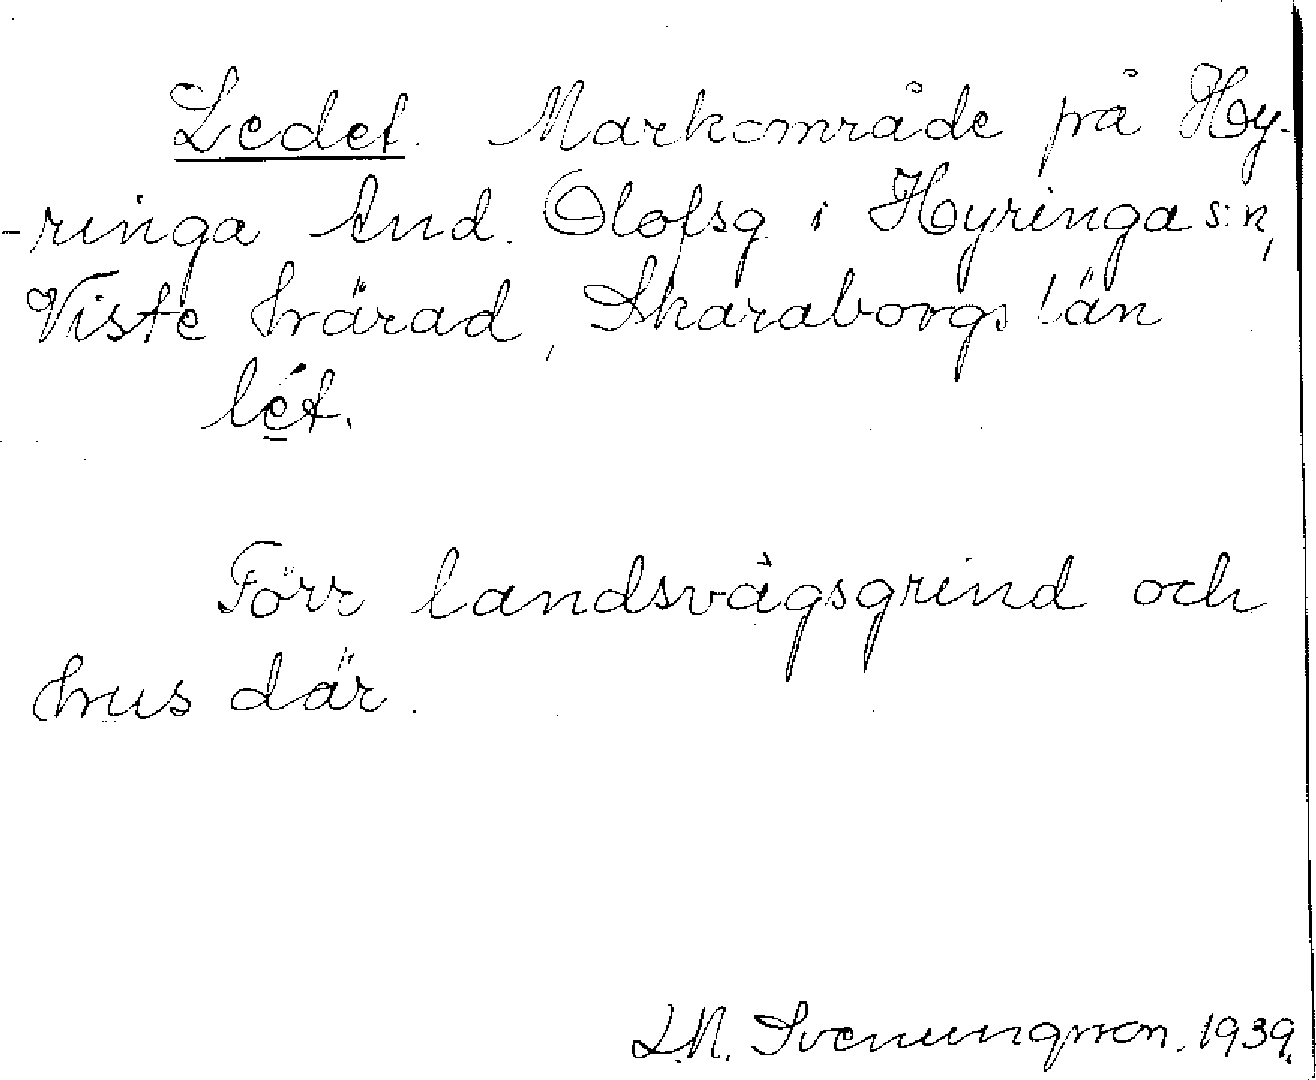 Ledet. Markområde på Hy-
-ringa And. Olofsg. i Hyringa s:n,
Viste härad, Skaraborgs län
lét.
Förr landsvägsgrind och
hus där.
L.N. Svenungsson. 1939.